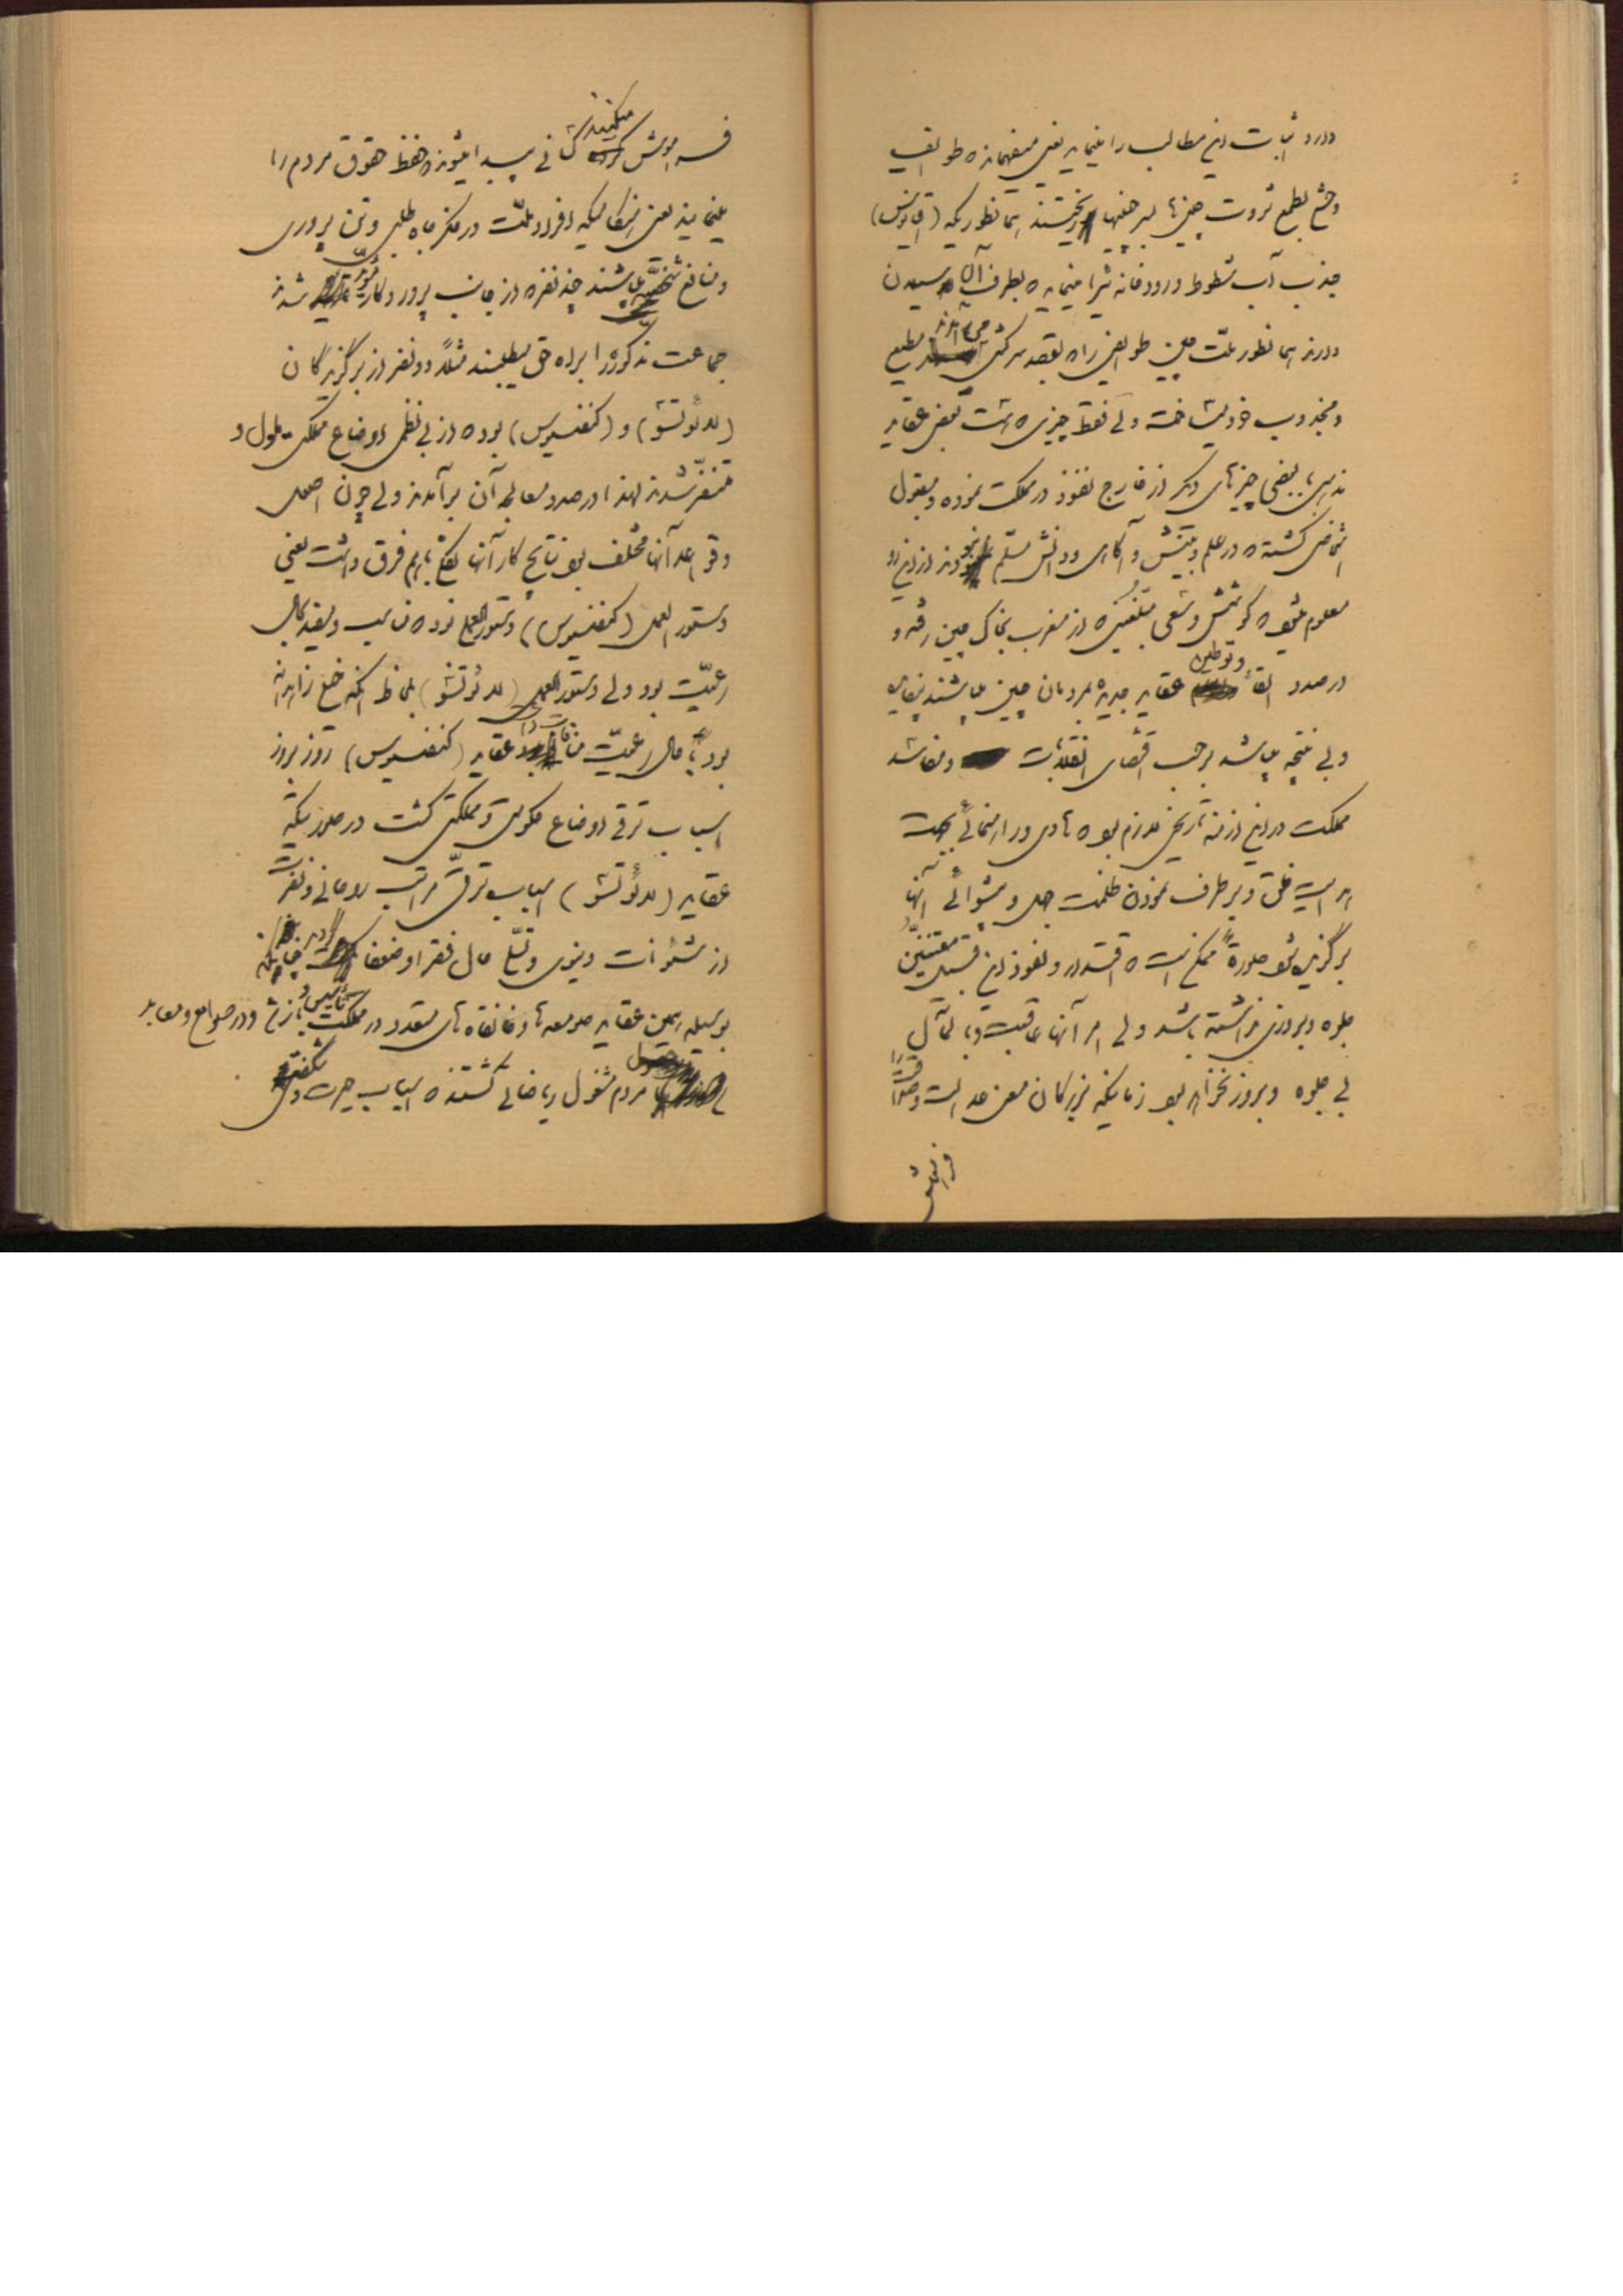 دارد اثبات این مطالب را مینماید یعنی میفهماند که طوایف
وحشی بطمع ثروت چینی‌ها بسر چینیها ریختند همانطوریکه (اقیانوس)
جذب آب شطوط و رودخانه‌ها را مینماید که بطرف آن رسیدن
دارند همانطور ملت چین طوایفی را که بقصد سرکشی می‌آمدند مطیع
و مجذوب خود میساخته ولی فقط چیزی که هست بعضی عقاید
مذهبی یا بعضی چیزهای دیگر از خارج نفوذ در مملکت نموده و مقبول
اشخاصی گشته که در علم و بینش و آگاهی و دانش مسلم بودند از این رو
معلوم میشود که کوشش و سعی مبلغینی که از مغرب بخاک چین رفته و
در صدد القاء و توطین عقاید جدیده بمردمان چین میباشند بیفایده
و بی نتیجه میباشد بر حسب اقتضای انقلابات و مفاسد
مملکت در این ازمنه تاریخی لازم بوده هادی و راهنمائی بجهت
هدایت خلق و برطرف نمودن ظلمت جهل و پیشوائی آنها
برگزیده شود صورةً ممکن است که اقتدار و نفوذ این قبیل مقننین
جلوه و بروزی نداشته باشد ولی امر آنها عاقبت و بالمآل
بی جلوه و بروز نخواهد بود زمانیکه بزرگان معنی عدالت و صداقت را
فراموش
فراموش میکنند کسانی پیدا میشوند که حفظ حقوق مردم را
مینمایند یعنی هنگامیکه افراد ملت در فکر جاه طلبی و تن پروری
و منافع شخصی میباشند چند نفر که از جانب پروردگار مؤید شدند
جماعت مذکوره را براه حق میطلبند مثلاً دو نفر از برگزیدگان
(لائوتشو) و (کنفسیوس) بوده از بی نظمی اوضاع مملکت ملول و
متنفر شدند لهذا در صدد معالجه آن برآمدند ولی چون اصول
و قواعد آنها مختلف بود نتایج کار آنها نیز با هم فرق داشت یعنی
دستور العمل (کنفسیوس) دستور العملی بوده مناسب و مفید بحال
رعیت بود ولی دستور العمل (لائوتشو) بلحاظ اینکه خیلی زاهدانه
بود با حال رعیت منافات داشت عقاید (کنفسیوس) روز بروز
اسباب ترقی اوضاع حکومتی و مملکتی گشت در صورتیکه
عقاید (لائوتشو) اسباب ترقی مراتب روحانی و نفرت
از شئونات دنیوی و تسلی حال فقرا و ضعفا گردید چنانکه
بوسیله همین عقاید صومعه‌ها و خانقاه‌های متعدد در مملکت تأسیس و باز شد و در صوامع و معابد
مردم مشغول ریاضاتی گشتند که اسباب حیرت و شگفتی